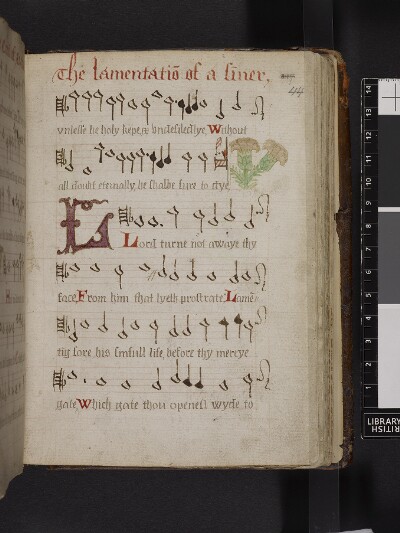 The lamentatiō of a siner.
44
vnlesse he holy kepe, & vndefiledlye, Without
all doubt eternally, he shalbe sure to dye
Lord turne not awaye thy
face From him that lyeth prostrate Lamē-
tīg sore his sinfull life, before thy mercye
gate Which gate thou openest wyde to
14
13
12
11
10
9
8
7
6
5
4
3
2
1
BRITISH
LIBRARY